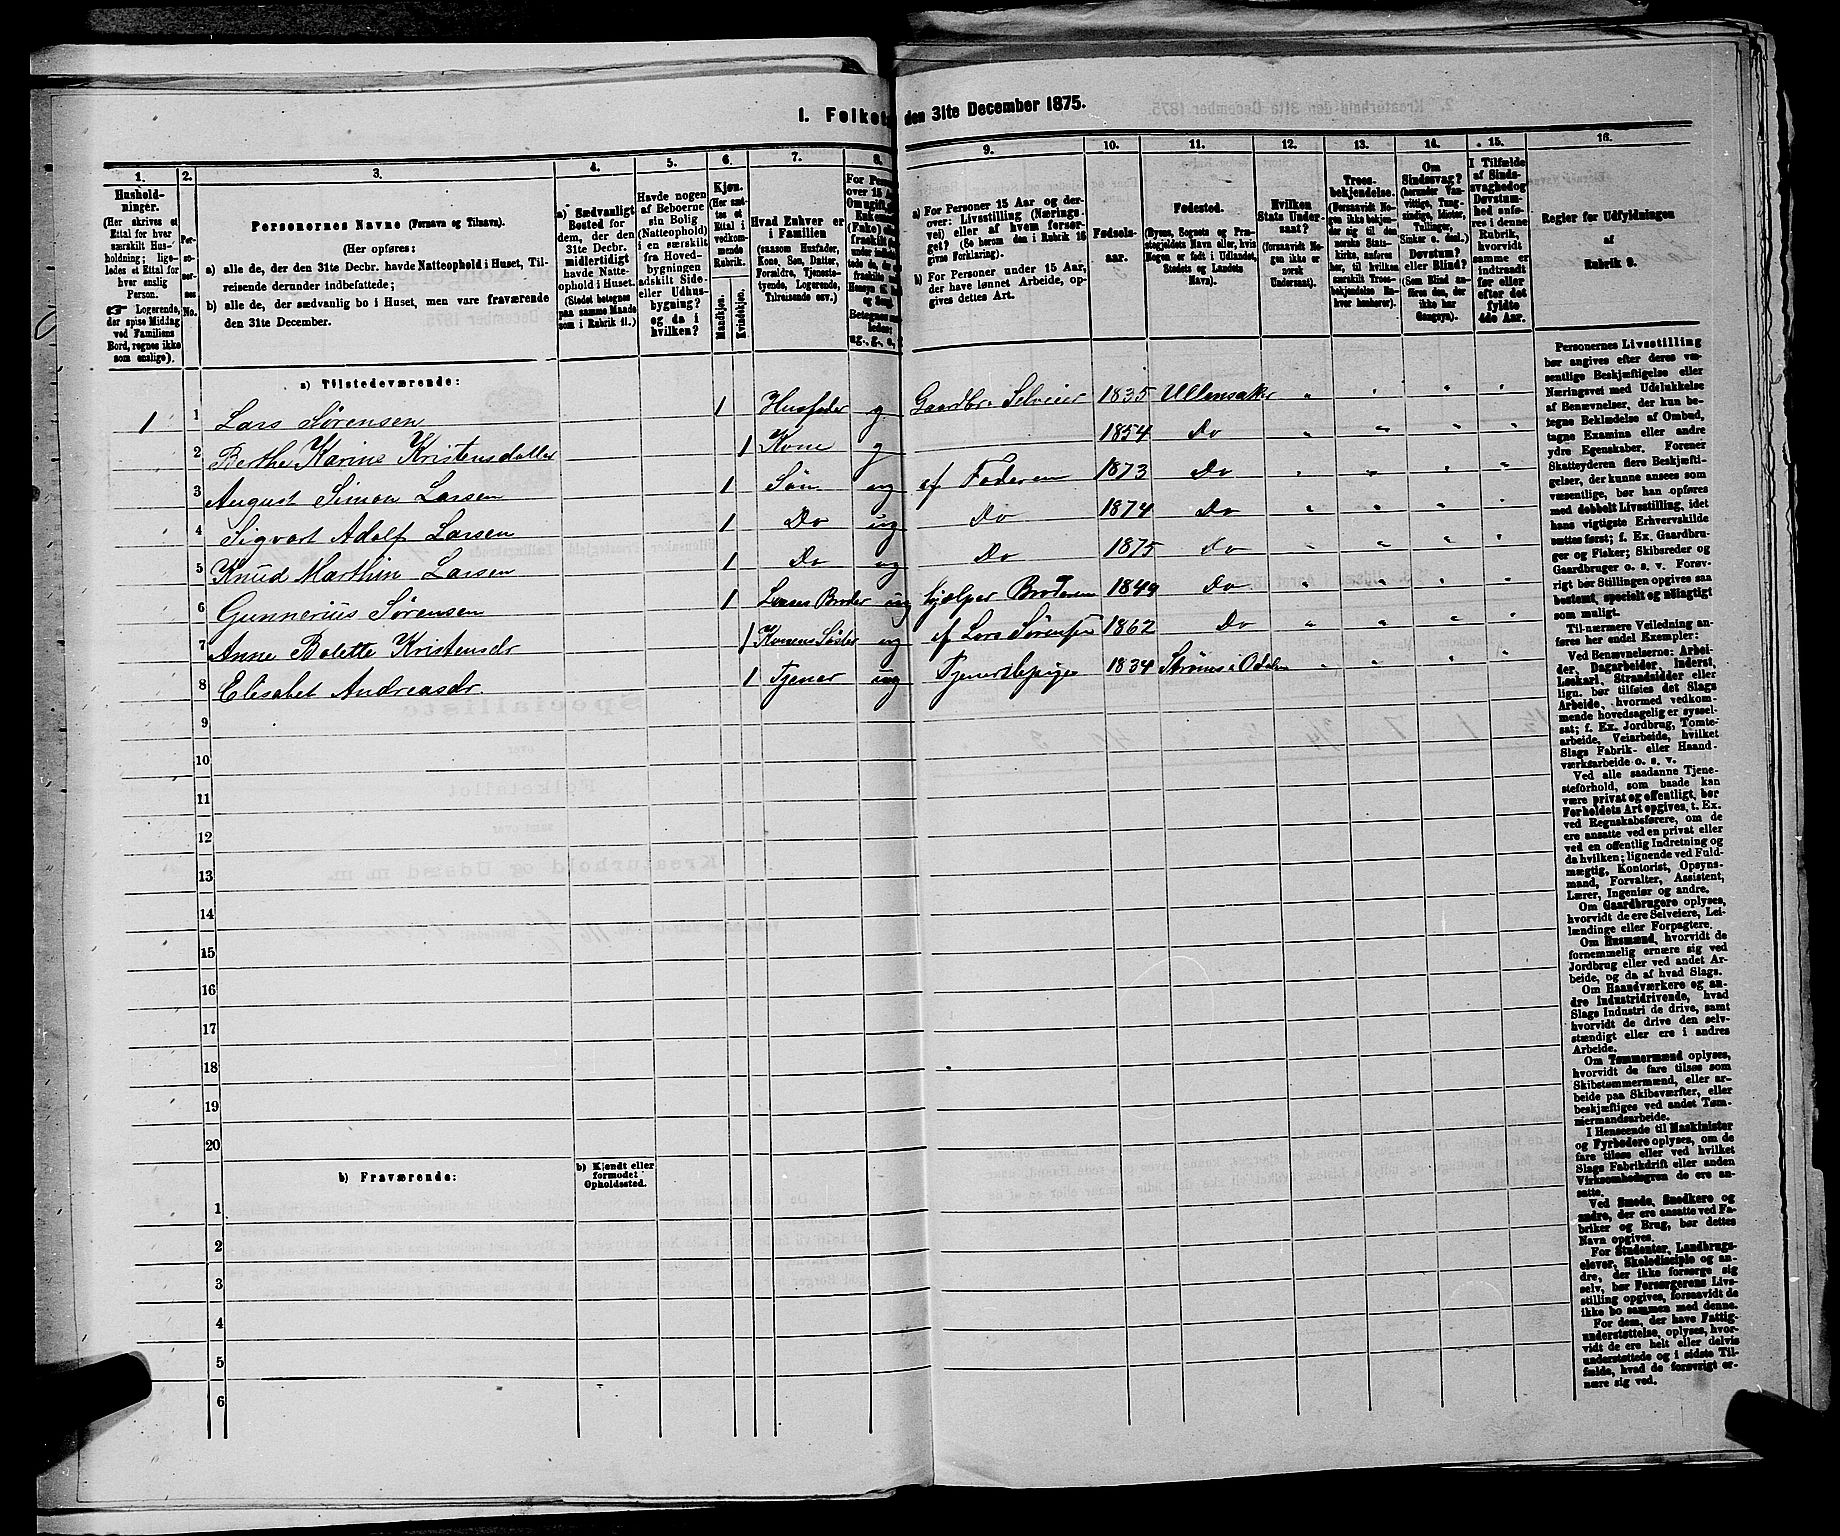 1. Folketal den 31te December 1875.
1. 2. 3. 4. 5. 6. 7. 8. 9. 10. 11. 12. 13. 14. 15. 16.
Hushold-
ninger.
(Her skrives et
Ettal for hver
særskilt Hus-
holdning; lige-
ledes et Ettal for
hver enslig
Person.
Logerende,
der spise Middag
ved Familiens
Bord, regnes ikke
som enslige).
Per-
so-
ner-
nes
No.
Personernes Navne (Fornavn og Tilnavn).
(Her opføres;
a) alle de, der den 31te Decbr. havde Natteophold i Huset, Til-
reisende derunder indbefattede;
b) alle de, der sædvanlig bo i Huset, men vare fraværende
den 31te December.
a) Sædvanligt
Bosted for
dem, der den
31te Decbr.
midlertidigt
havde Natte-
ophold i Huset.
(Stedet betegnes
paa samme Maade
som i Rubrik 11.)
Havde nogen
af Beboerne
sin Bolig
(Natteophold)
i en særskilt
fra Hoved-
bygningen
adskilt Side-
eller Udhus-
bygning?
og da i
hvilken?
Kjøn.
(Her sæt-
tes et
Ettal i
vedkom-
mende
Rubrik.
Mandkjøn.
Kvindekjøn.
Hvad Enhver er
i Familien
(saasom Husfader,
Kone, Søn, Datter,
Forældre, Tjeneste-
tyende, Logerende,
Tilreisende osv.)
a) For Personer 15 Aar og der-
over: Livsstilling (Nærings-
vei) eller af hvem forsør-
get? (Se herom den i Rubrik 16
givne Forklaring).
b) For Personer under 15 Aar,
der have lønnet Arbeide, op-
gives dettes Art.
Fødsels-
aar.
Fødested.
(Byens, Sognets og Præ-
stegjeldets Navn eller, hvis
Nogen er født i Udlandet,
Stedets og Landets
Navn).
Hvilken
Stats Under-
saat?
(forsaavidt No-
gen ikke er
norsk
Undersaat).
Troes-
bekjendelse.
(Forsaavidt No-
gen ikke bekjen-
der sig til den
norske Stats-
kirke, anfø-
res, til hvilken
særskilt Troes-
bekjendelse En-
hver henhører).
Om
Sindssvag?
(herunder Van-
vittige, Tung-
sindige, Idioter,
Tullinger,
Sinker o. desl.)
Døvstum?
eller Blind?
(Som Blind an-
føres den, der
ikke har
Gangsyn).
I Tilfælde
af Sinds-
svaghed og
Døvstum-
hed anfø-
res i denne
Rubrik,
hvorvidt
samme er
indtraadt
før eller
efter det
fyldte
4de Aar.
Regler for Udfyldningen
af
Rubrik 9.
a) Tilstedeværende:
1 1 Lars Sørensen 1 Husfader g Gaardbr. Selveier 1835 Ullensaker " " " "
2 Berthe Karine Kristensdatter 1 Kone g 1854 Do " " " "
3 August Simon Larsen 1 Søn ug af Faderen 1873 Do " " " "
4 Sigvart Adolf Larsen 1 Do ug Do 1874 Do " " " "
5 Knud Marthin Larsen 1 Do ug Do 1875 Do " " " "
6 Gunnerius Sørensen 1 Broder ug hjælper Broderen 1849 Do " " " "
7 Anne Bolette Kristensdr 1 Konens Søster ug af Lars Sørensen 1862 Do " " " "
8 Elisabet Andreasdr 1 Tjener ug Tjenestepige 1834 Strøms i Odalen " " " "
9
10
11
12
13
14
15
16
17
18
19
20
b) Fraværende:
b) Kjendt eller
formodet
Opholdssted.
1
2
3
4
5
6
Personernes Livsstilling
bør angives efter deres væ-
sentlige Beskjæftigelse eller
Næringsvei med Udelukkelse
af Benævnelser, der kun be-
tegne Beklædelse af Ombud,
tagne Examina eller andre
ydre Egenskaber. Forener
Skatteyderen flere Beskjæfti-
gelser, der kunne ansees som
væsentlige, bør han opføres
med dobbelt Livsstilling, idet
hans vigtigste Erhvervskilde
sættes først; f. Ex. Gaardbru-
ger og Fisker; Skibsreder og
Gaardbruger o. s. v. Forøv-
rigt bør Stillingen opgives saa
bestemt, specielt og nøiagtigt
som muligt.
Til nærmere Veiledning an-
føres her endel Exempler:
Ved Benævnelserne: Arbei-
der, Dagarbeider, Inderst,
Løskarl, Strandsidder eller
lign. bør tilføies det Slags
Arbeide, hvormed vedkom-
mende hovedsagelig er syssel-
sat; f. Ex. Jordbrug, Tomte-
arbeide, Veiarbeide, hvilket
Slags Fabrik- eller Haand-
værksarbeide o. s. v.
Ved alle saadanne Tjene-
steforhold, som baade kan
være privat og offentligt, bør
Forholdets Art opgives, t. Ex.
ved Regnskabsførere, om de
ere ansatte ved en privat eller
ved en offentlig Indretning og
da hvilken; lignende ved Fuld-
mægtig, Kontorist, Opsyns-
mand, Forvalter, Assistent,
Lærer, Ingeniør og andre.
Om Gaardbrugere oplyses,
hvorvidt de ere Selveiere, Lei-
lændinge eller Forpagtere.
Om Husmænd, hvorvidt de
fornemmelig ernære sig ved
Jordbrug eller ved andet Ar-
beide, og da af hvad Slags.
Om Haandværkere og an-
dre Industridrivende, hvad
Slags Industri de drive, samt
hvorvidt de drive den selv-
stændigt eller ere i andres
Arbeide.
Om Tømmermænd oplyses,
hvorvidt de fare tilsøs som
Skibstømmermænd, eller ar-
beide paa Skibsværfter, eller
beskjæftiges ved andet Tøm-
mermandsarbeide.
I Henseende til Maskinister
og Fyrbødere oplyses, om de
fare tilsøs eller ved hvilket
Slags Fabrikdrift eller anden
Virksomhedsgren de ere an-
satte.
Ved Smede, Snedkere og
andre, der ere ansatte ved Fa-
briker og Brug, bør dettes
Navn opgives.
For Studenter, Landbrugs-
elever, Skoledisciple og an-
dre, der ikke forsørge sig
selv, bør Forsørgerens Livs-
stilling opgives, forsaavidt de
ikke bo sammen med denne.
For dem, der have Fattig-
understøttelse, oplyses, hvor-
vidt de ere helt eller delvis
understøttede og i sidste Til-
fælde, hvad de forøvrigt er-
nære sig ved.